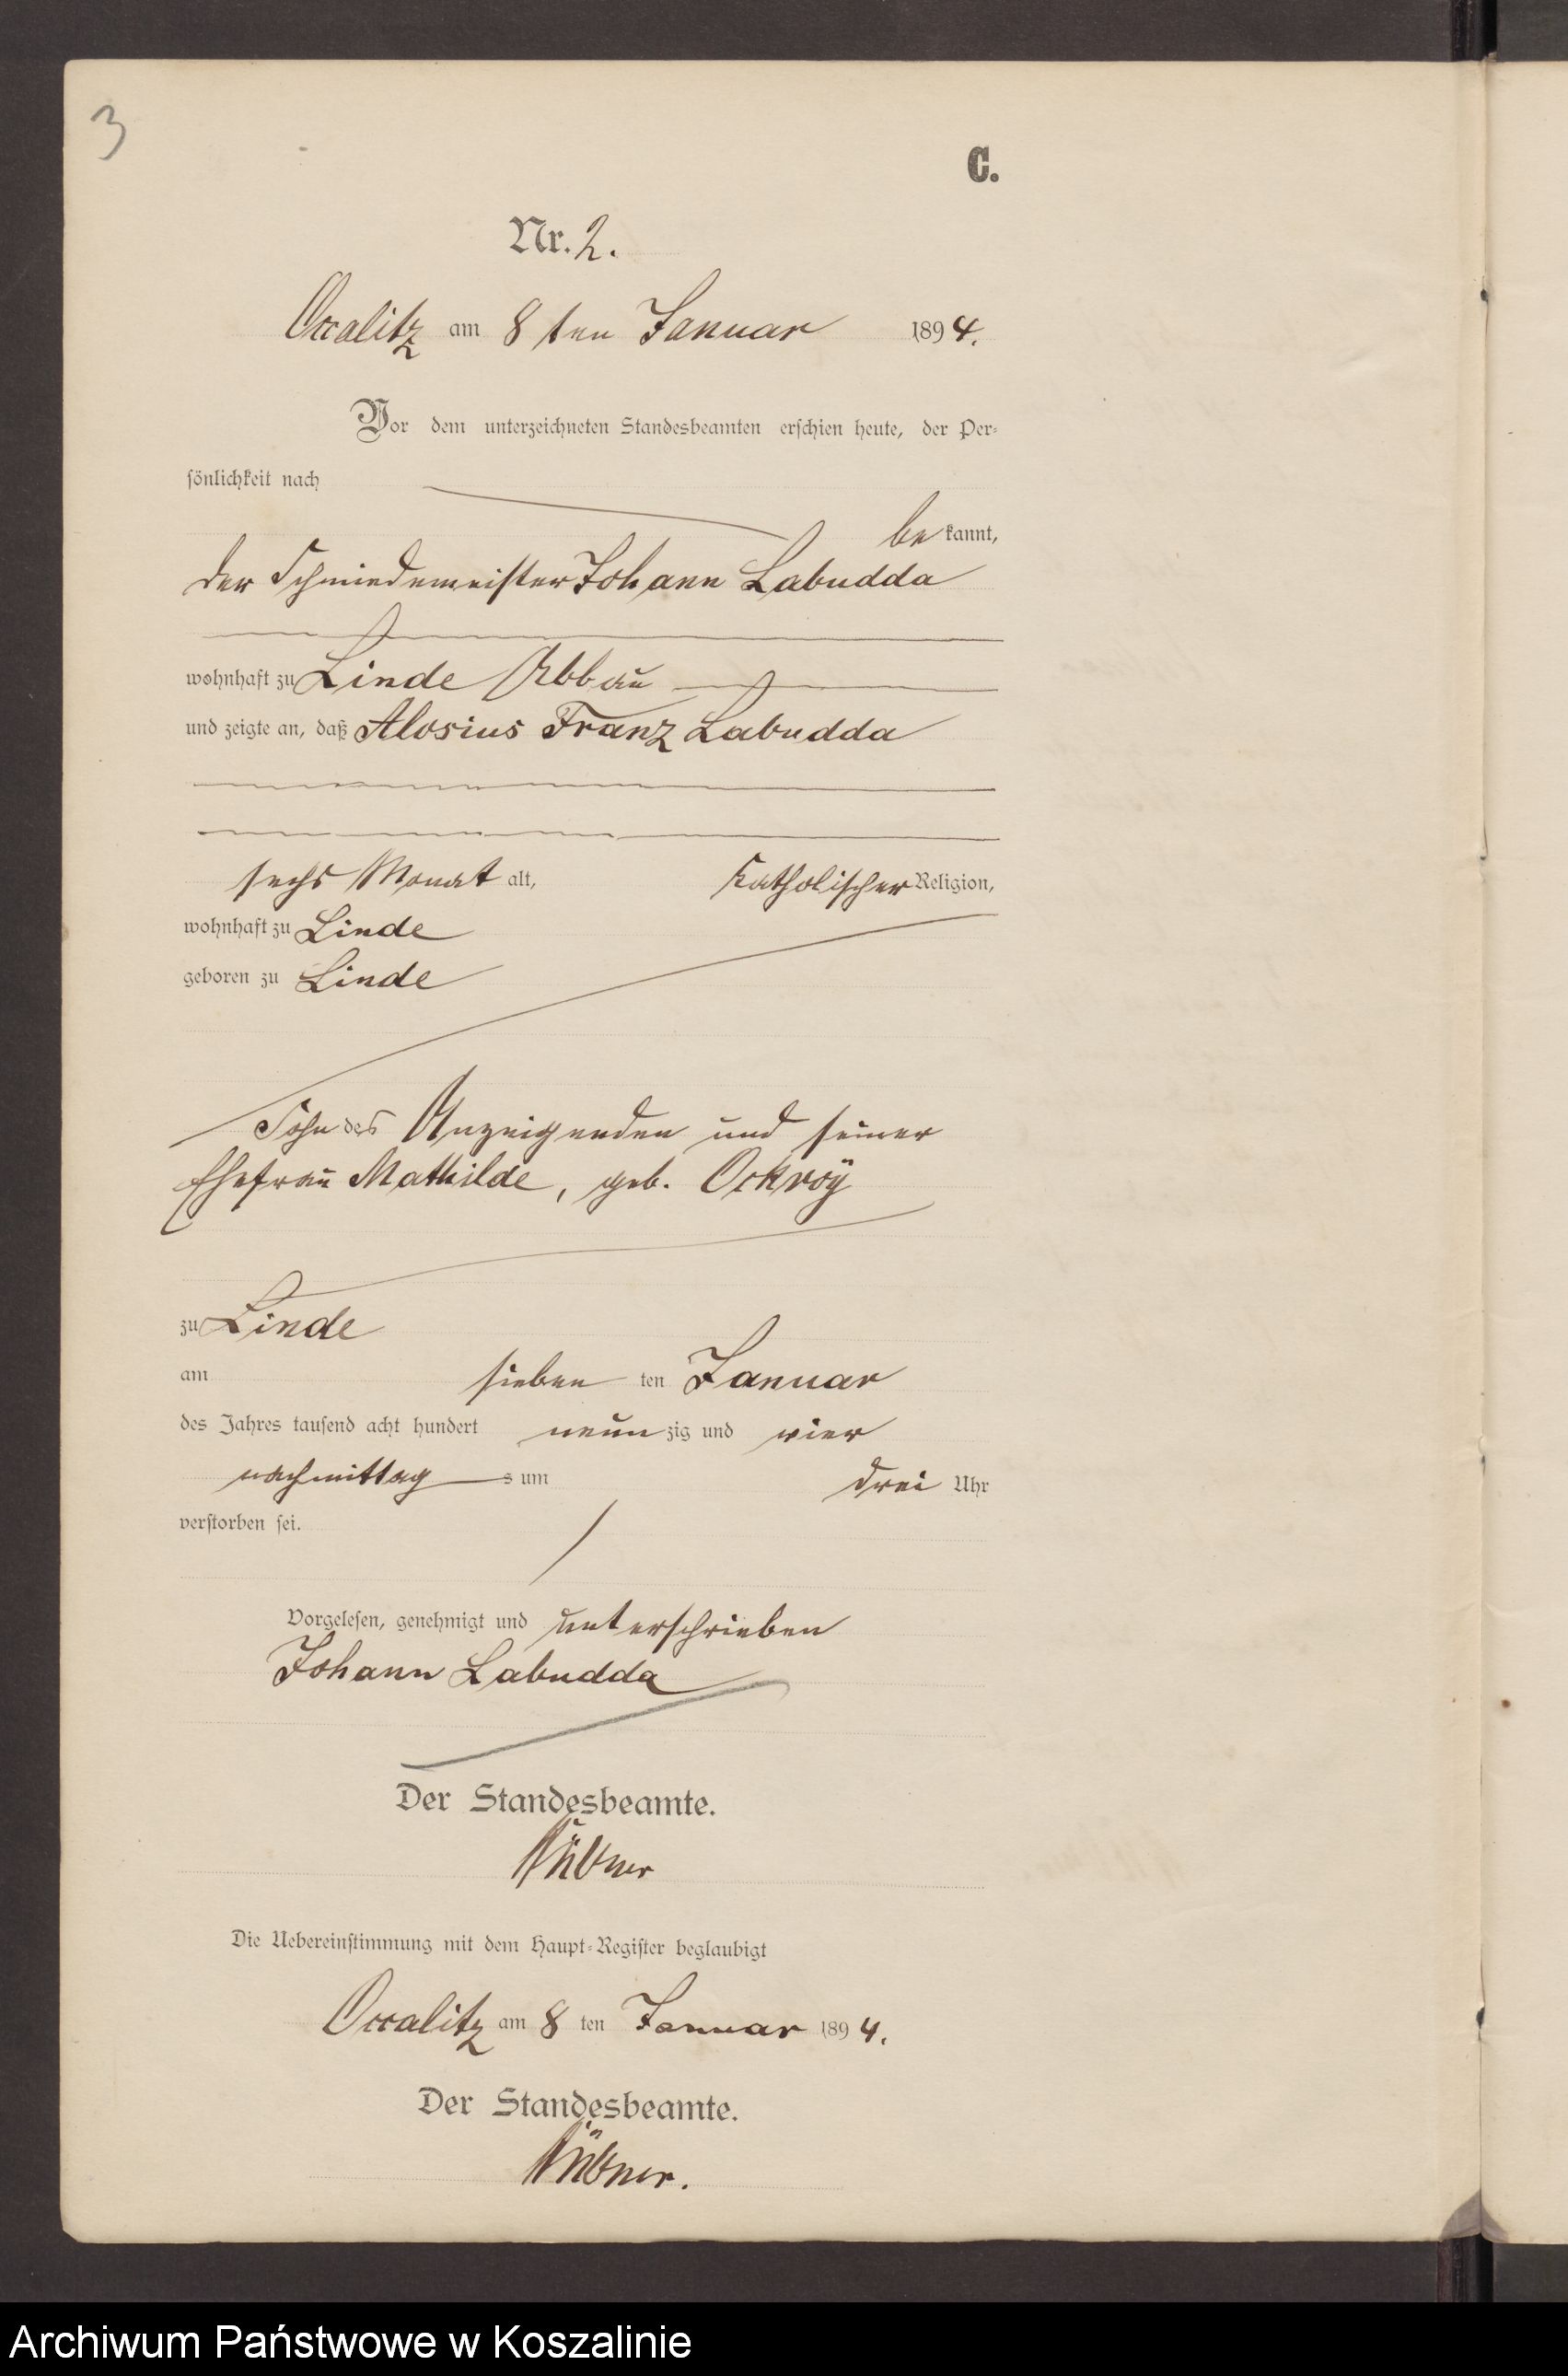 3
C.
Nr. 2.
Occalitz am 8 ten Januar 1894.
Vor dem unterzeichneten Standesbeamten erschien heute, der Per-
sönlichkeit nach
bekannt,
der Schmiedemeister Johann Labudda
wohnhaft zu Linde Abbau
und zeigte an, daß Alosius Franz Labudda
sechs Monat alt, Katholischer Religion,
wohnhaft zu Linde
geboren zu Linde
Sohn des Anzeigenden und seiner
Ehefrau Mathilde, geb. Ockroÿ
zu Linde
am sieben ten Januar
des Jahres tausend acht hundert neunzig und vier
nachmittags um drei Uhr
verstorben sei.
Vorgelesen, genehmigt und unterschrieben
Johann Labudda
Der Standesbeamte.
Die Uebereinstimmung mit dem Haupt-Register beglaubigt
Occalitz am 8 ten Januar 1894.
Der Standesbeamte.
Archiwum Państwowe w Koszalinie